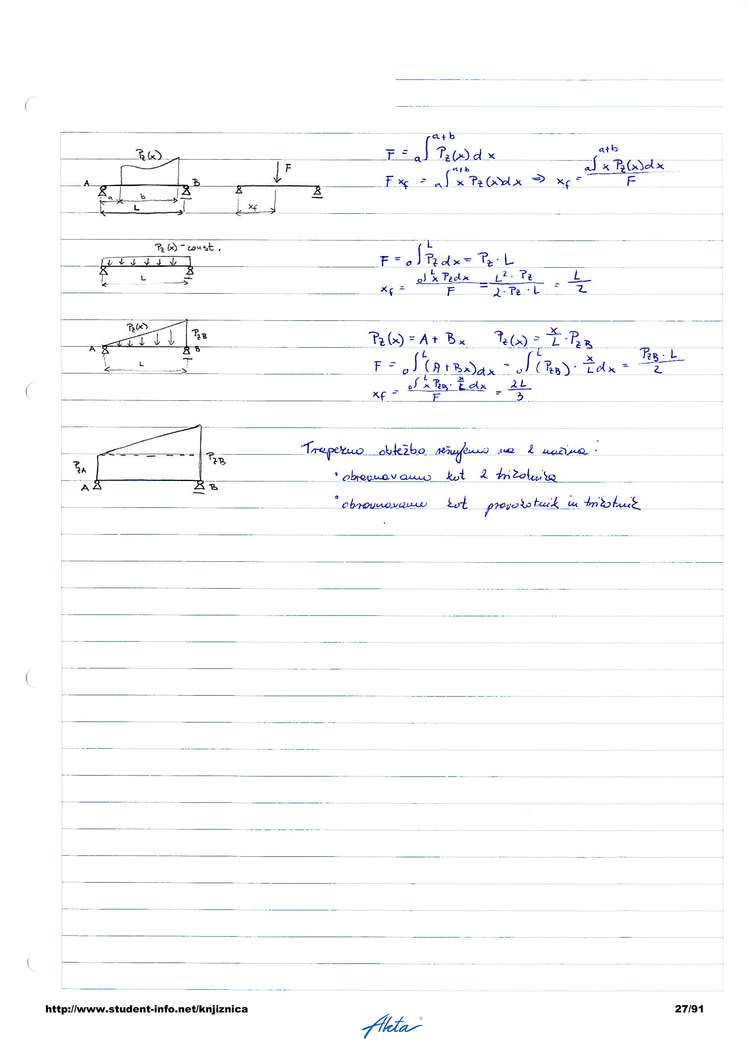 Pz(x)
F
A
B
a
b
L
xf
F = a∫^a+b Pz(x)dx
F xf = a∫^a+b x Pz(x)dx ⇒ xf = a∫^a+b x Pz(x)dx / F
Pz(x) - const.
L
F = 0∫^L Pz dx = Pz · L
xf = 0∫^L x Pz dx / F = L² · Pz / 2 · Pz · L = L / 2
Pz(x)
PzB
A
B
L
Pz(x) = A + Bx Pz(x) = x/L · PzB
F = 0∫^L (A + Bx)dx = 0∫^L (PzB) · x/L dx = PzB · L / 2
xf = 0∫^L x PzB · x/L dx / F = 2L / 3
PzA
PzB
A
B
Trapezno obtežbo rešujemo na 2 načina :
• obravnavamo kot 2 trikotnika
• obravnavamo kot pravokotnik in trikotnik
http://www.student-info.net/knjiznica
27/91
Akta